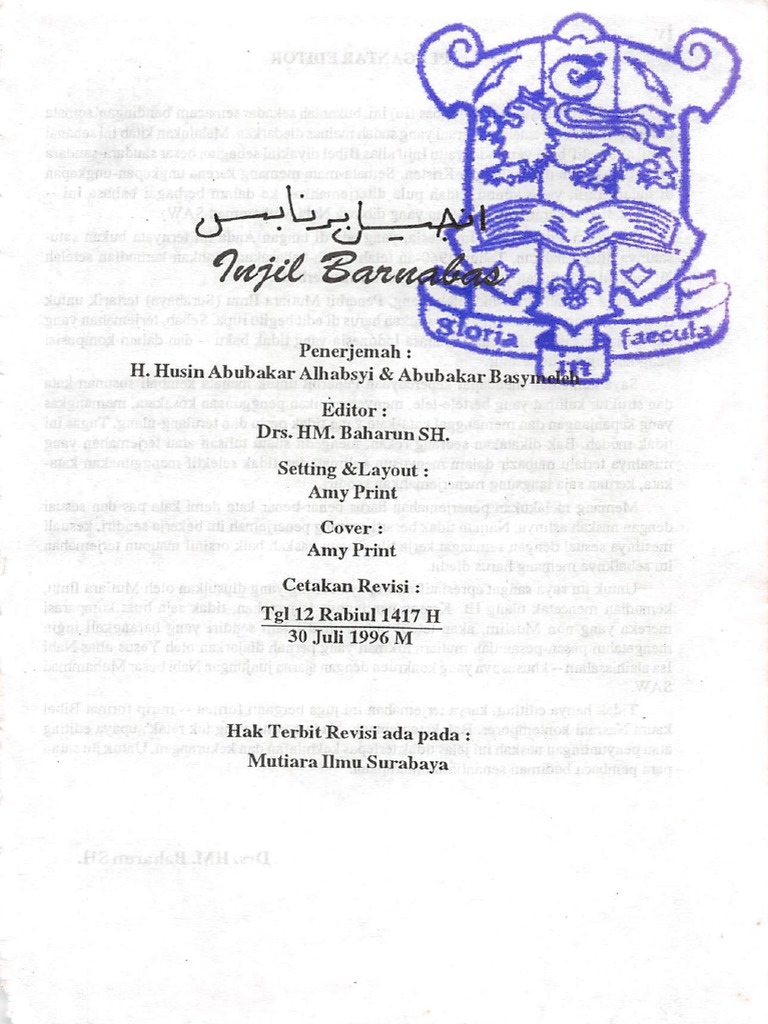 انجيل برنابس
Injil Barnabas
gloria in faecula
Penerjemah :
H. Husin Abubakar Alhabsyi & Abubakar Basymeleh
Editor :
Drs. HM. Baharun SH.
Setting &Layout :
Amy Print
Cover :
Amy Print
Cetakan Revisi :
Tgl 12 Rabiul 1417 H
30 Juli 1996 M
Hak Terbit Revisi ada pada :
Mutiara Ilmu Surabaya